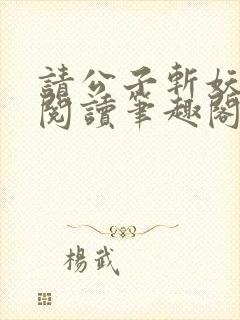 請公子斬妖
閱讀筆趣閣
楊武